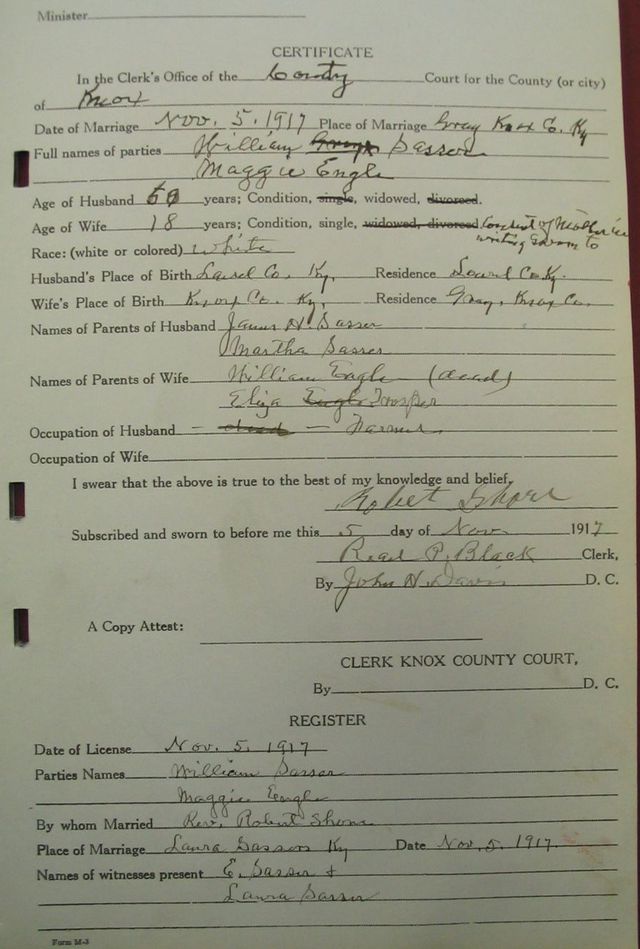 Minister
CERTIFICATE
In the Clerk's Office of the County Court for the County (or city)
of Knox
Date of Marriage Nov. 5. 1917 Place of Marriage Gray Knox Co. Ky
Full names of parties William Sasser
Maggie Engle
Age of Husband years; Condition, single, widowed, divorced.
Age of Wife 18 years; Condition, single, widowed, divorced Consent of Mother in
writing sworn to
Race: (white or colored) white
Husband's Place of Birth Laurel Co. Ky. Residence Laurel Co Ky.
Wife's Place of Birth Knox Co. Ky. Residence Gray, Knox Co.
Names of Parents of Husband James H. Sasser
Martha Sasser
Names of Parents of Wife William Engle (dead)
Eliza Engle Trosper
Occupation of Husband — dead — Farmer
Occupation of Wife
I swear that the above is true to the best of my knowledge and belief,
Robert
Subscribed and sworn to before me this 5 day of Nov 1917
Read P. Black Clerk,
By John H. Davis D. C.
A Copy Attest:
CLERK KNOX COUNTY COURT,
By D. C.
REGISTER
Date of License Nov. 5. 1917
Parties Names William Sasser
Maggie Engle
By whom Married Rev. Robert
Place of Marriage Laura Sassers Ky Date Nov. 5. 1917.
Names of witnesses present E. Sasser +
Laura Sasser
Form M-3